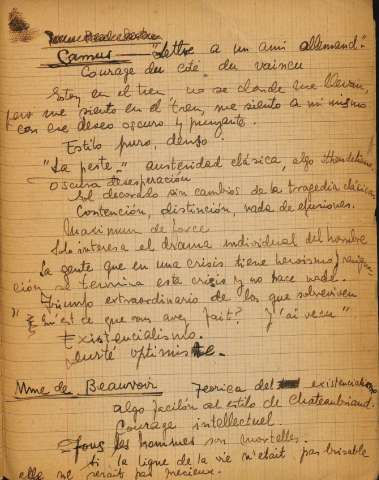 Camus "Lettre a un ami allemand".
Courage du coté du vaincu
Estoy en el tren no se donde me llevan,
pero me siento en el tren, me siento a mi mismo
con ese deseo oscuro y punzante.
Estilo puro, denso.
"La peste" austeridad clásica, algo
oscura desesperación
decorado sin cambios de la tragedia clásica
Contención, distinción, nada de efusiones.
Maximum de force
Solo interesa el drama individual del hombre
La gente que en una crisis tiene heroismo,
ción se termina esta crisis y no hace nada.
Triunfo extraordinario de los que sobreviven
" Qu'est ce que vous avez fait? J'ai vecu"
Existencialismo.
optimiste.
Mme de Beauvoir Teorica del
algo facilón del estilo de Chateaubriand.
Courage intellectuel.
Tous les hommes son mortelles.
Si la ligne de la vie n'était pas brisable
elle ne serait pas precieux.